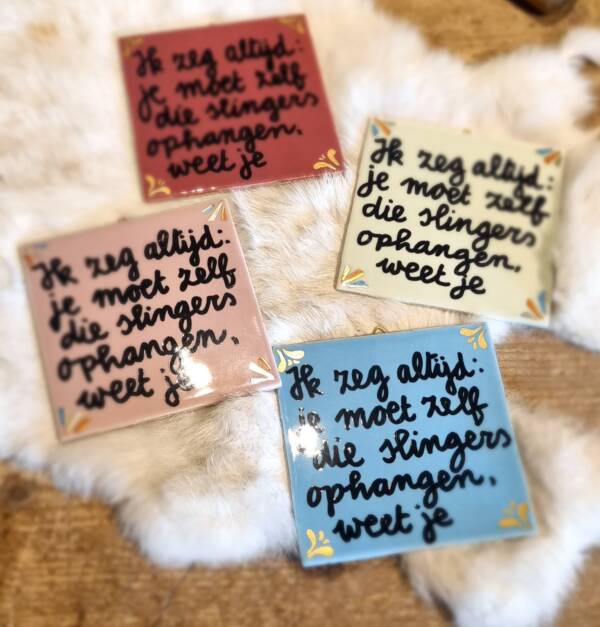 Ik zeg altijd:
je moet zelf
die slingers
ophangen,
weet je
Ik zeg altijd:
je moet zelf
die slingers
ophangen,
weet je
Ik zeg altijd:
je moet zelf
die slingers
ophangen,
weet je
Ik zeg altijd:
je moet zelf
die slingers
ophangen,
weet je